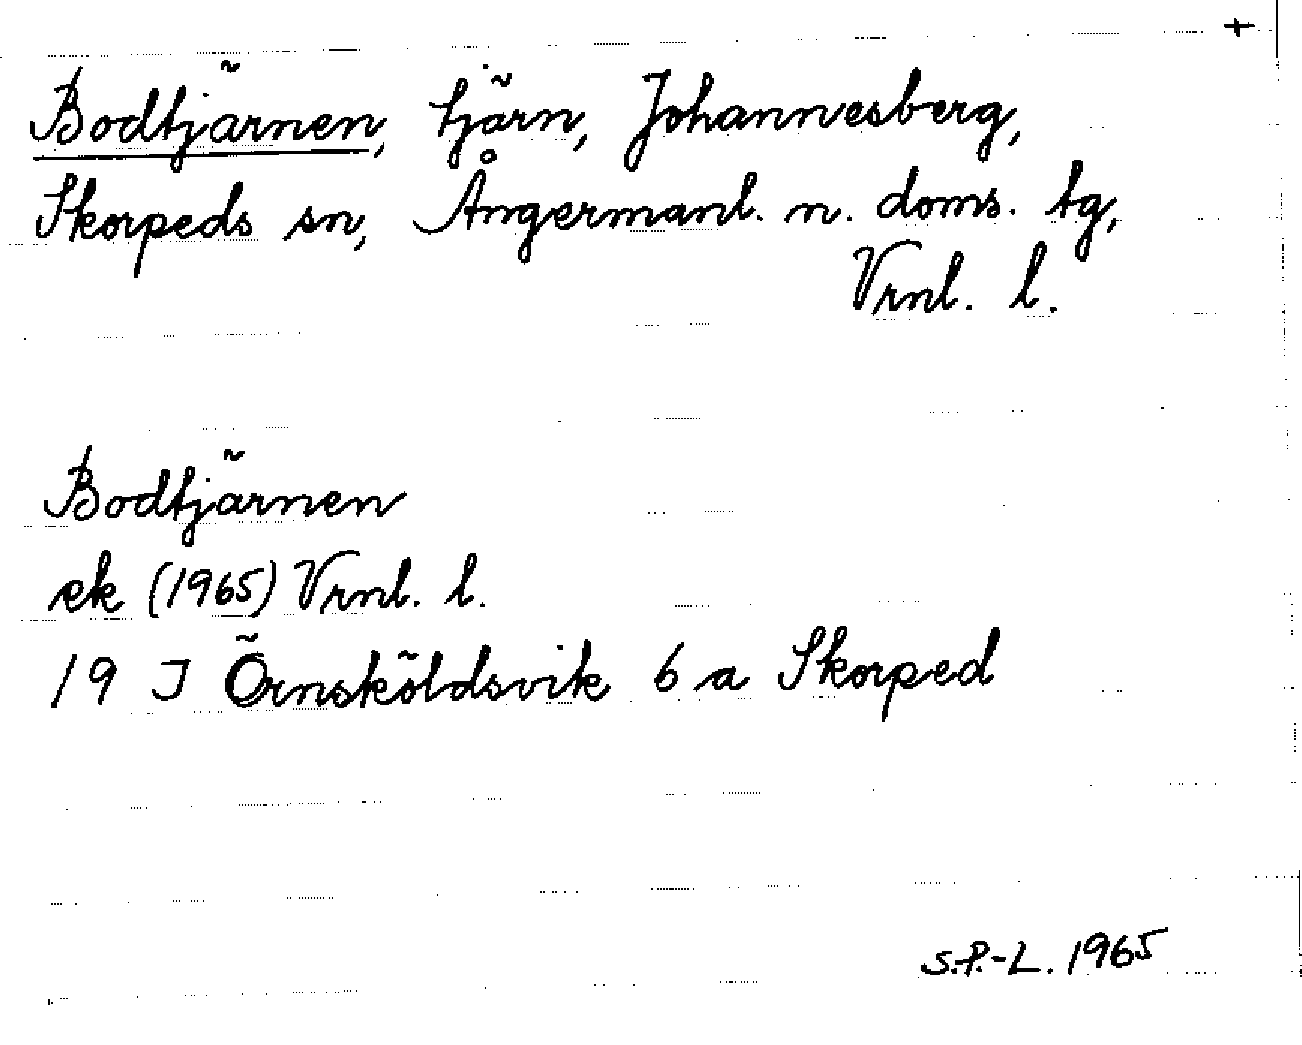 +
Bodtjärnen, tjärn, Johannesberg,
Skorpeds sn, Ångermanl. n. doms. tg,
Vrnl. l.
Bodtjärnen
ek (1965) Vrnl. l.
19 J Örnsköldsvik 6 a Skorped
S.P.-L. 1965